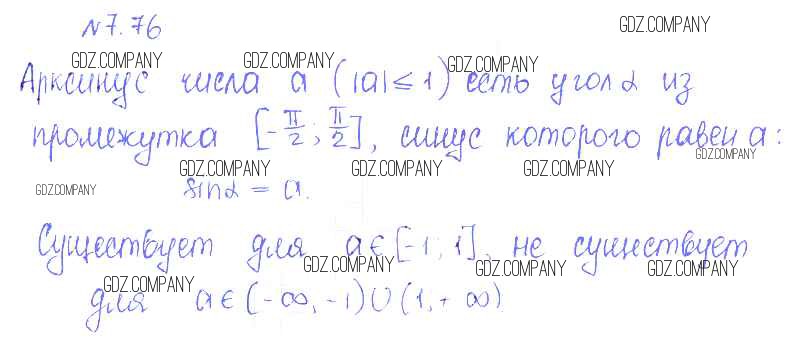 N7.76
GDZ.COMPANY
GDZ.COMPANY GDZ.COMPANY GDZ.COMPANY
Арксинус числа a (|a| ≤ 1) есть угол α из
промежутка [-π/2; π/2], синус которого равен a:
GDZ.COMPANY
GDZ.COMPANY GDZ.COMPANY GDZ.COMPANY
GDZ.COMPANY
sinα = a.
Существует для a∈[-1; 1], не существует
GDZ.COMPANY GDZ.COMPANY GDZ.COMPANY
GDZ.COMPANY
для a∈(-∞, -1)∪(1, +∞)